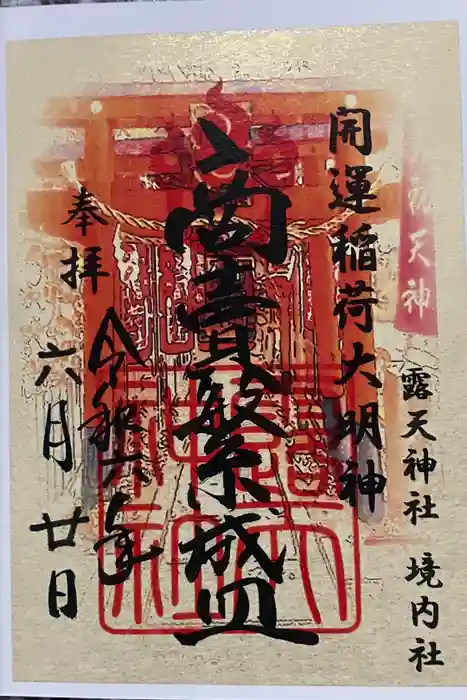 天神
露天神社 境内社
開運稲荷大明神
商賣繁盛
奉拝
令和六年
六月
廿日